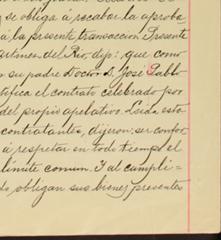 se obliga á recabar la aproba
á la presente transacción. Presente
artinez del Rio, dijo: que como
su padre Doctor D. José Pablo
tifica el contrato celebrado por
del propio apelativo. Leida esta
contratantes, dijeron: ser confor
á respetar en todo tiempo el
límite comun. Y al cumpli-
obligan sus bienes presentes